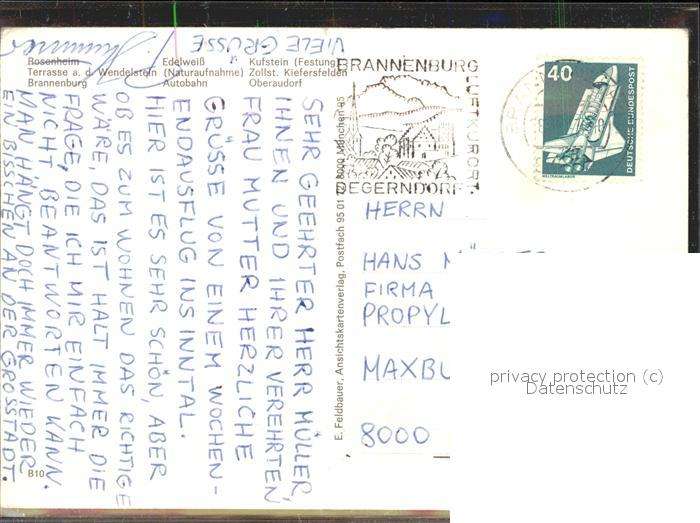 Rosenheim
Terrasse a. d. Wendelstein (Naturaufnahme)
Brannenburg
Edelweiß
Autobahn
Kufstein (Festung)
Zollst. Kiefersfelden
Oberaudorf
SEHR GEEHRTER HERR MÜLLER,
IHNEN UND IHRER VEREHRTEN
FRAU MUTTER HERZLICHE
GRÜSSE VON EINEM WOCHEN-
ENDAUSFLUG INS INNTAL.
HIER IST ES SEHR SCHÖN, ABER
OB ES ZUM WOHNEN DAS RICHTIGE
WÄRE, DAS IST HALT IMMER DIE
FRAGE, DIE ICH MIR EINFACH
NICHT BEANTWORTEN KANN.
MAN HÄNGT DOCH IMMER WIEDER
EIN BISSCHEN AN DER GROSSTADT.
VIELE GRÜSSE
B10
E. Feldbauer, Ansichtskartenverlag, Postfach 95 01 8000 München 95
BRANNENBURG
LUFTKURORT
DEGERNDORF
40
DEUTSCHE BUNDESPOST
WELTRAUMLABOR
HERRN
HANS
FIRMA
PROPYL
MAXBU
8000
privacy protection (c)
Datenschutz